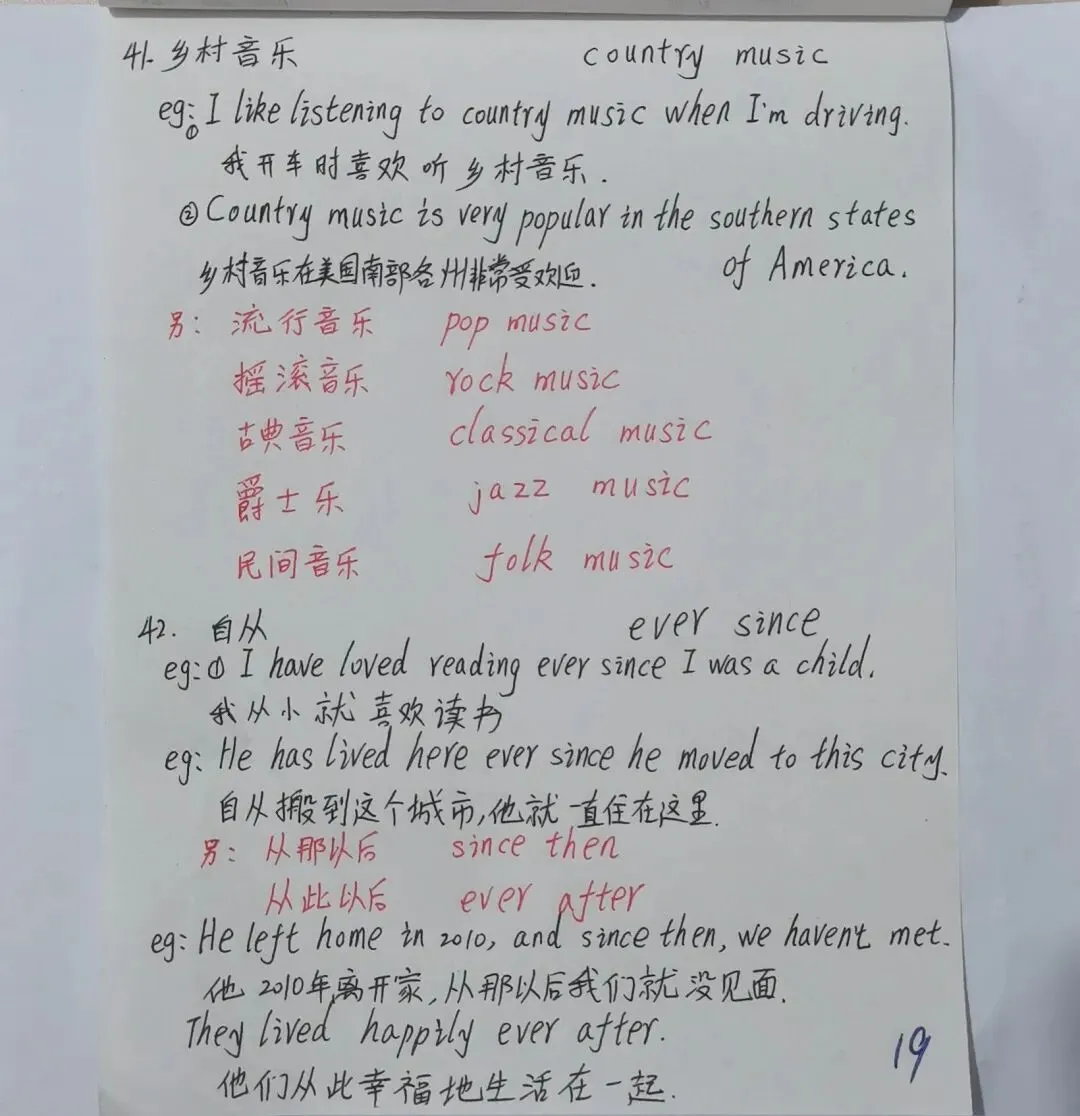 41. 乡村音乐 country music
eg: ① I like listening to country music when I'm driving.
我开车时喜欢听乡村音乐.
② Country music is very popular in the southern states
of America.
乡村音乐在美国南部各州非常受欢迎.
另: 流行音乐 pop music
摇滚音乐 rock music
古典音乐 classical music
爵士乐 jazz music
民间音乐 folk music
42. 自从 ever since
eg: ① I have loved reading ever since I was a child.
我从小就喜欢读书
eg: He has lived here ever since he moved to this city.
自从搬到这个城市,他就一直住在这里.
另: 从那以后 since then
从此以后 ever after
eg: He left home in 2010, and since then, we haven't met.
他2010年离开家,从那以后我们就没见面.
They lived happily ever after.
他们从此幸福地生活在一起.
19